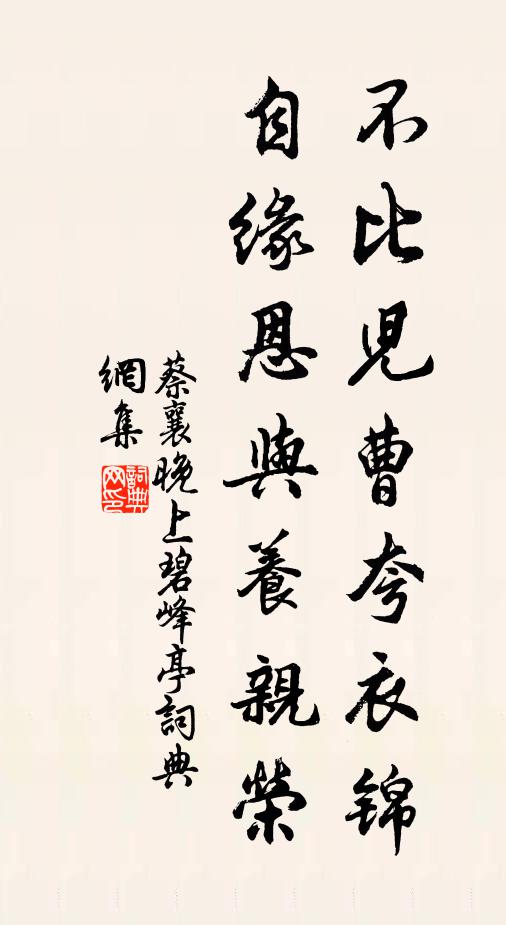 不比兒曹夸衣錦
自緣恩與養親榮
蔡襄晚上碧峰亭詞典
網集
詞典網印